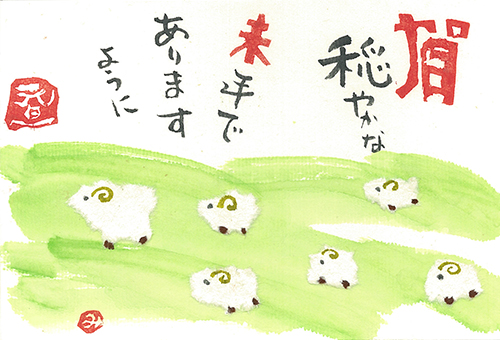 賀
穏やかな
来年で
あります
ように
春
み